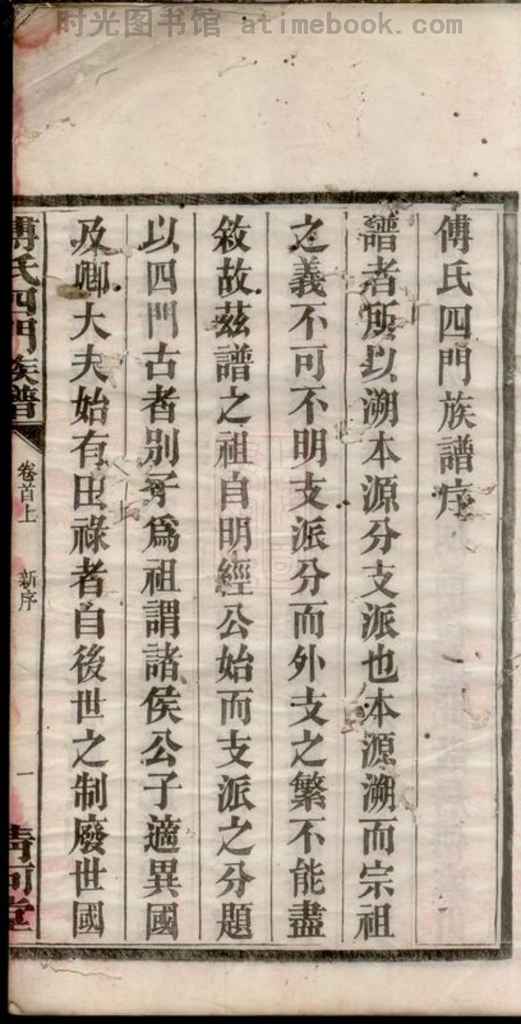 时光图书馆 atimebook.com
傅氏四門族譜序
譜者所以溯本源分支派也本源溯而宗祖
之義不可不明支派分而外支之繁不能盡
敘故茲譜之祖自明經公始而支派之分題
以四門古者別子爲祖謂諸侯公子適異國
及卿大夫始有田祿者自後世之制廢世國
傅氏四門族譜
卷首上
新序
一
清河堂